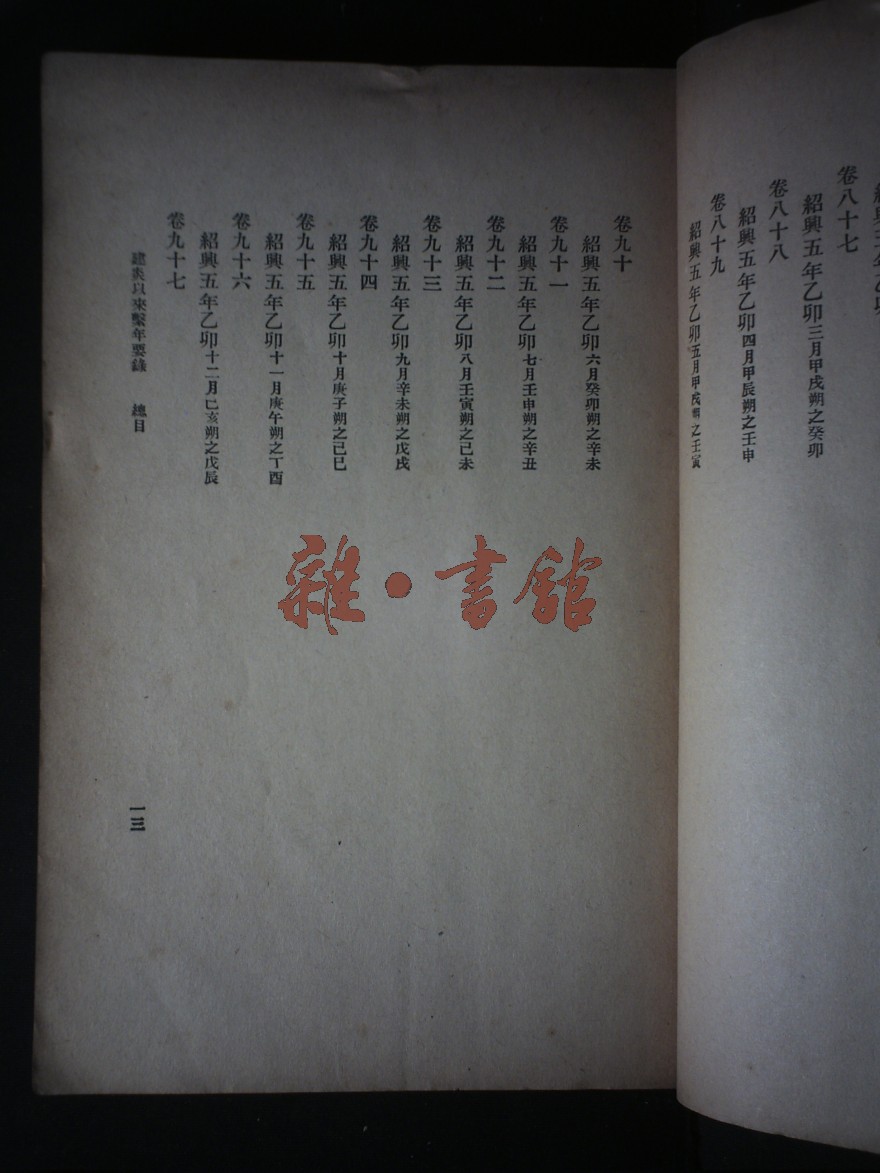 卷八十七
紹興五年乙卯三月甲戌朔之癸卯
卷八十八
紹興五年乙卯四月甲辰朔之壬申
卷八十九
紹興五年乙卯五月甲戌朔之壬寅
卷九十
紹興五年乙卯六月癸卯朔之辛未
卷九十一
紹興五年乙卯七月壬申朔之辛丑
卷九十二
紹興五年乙卯八月壬寅朔之己未
卷九十三
紹興五年乙卯九月辛未朔之戊戌
卷九十四
紹興五年乙卯十月庚子朔之己巳
卷九十五
紹興五年乙卯十一月庚午朔之丁酉
卷九十六
紹興五年乙卯十二月己亥朔之戊辰
卷九十七
建炎以來繫年要錄 總目
一三
雜·書館